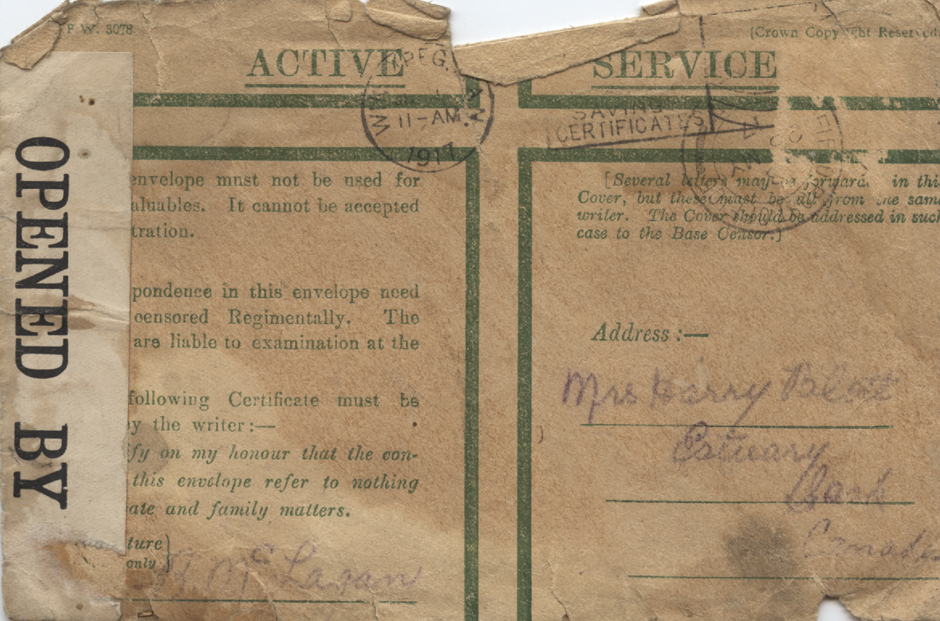 F.W. 3078
[Crown Copyright Reserved
ACTIVE SERVICE
PEG.
11-AM.
1917
SAVING
CERTIFICATES
OPENED BY
envelope must not be used for
aluables. It cannot be accepted
tration.
pondence in this envelope need
censored Regimentally. The
are liable to examination at the
following Certificate must be
y the writer:—
fy on my honour that the con-
this envelope refer to nothing
ate and family matters.
ture)
only
McLagan
[Several letters may be forward in this
Cover, but these must be all from the same
writer. The Cover should be addressed in such
case to the Base Censor.]
Address:—
Mrs Harry
Estuary
Sask
Canada